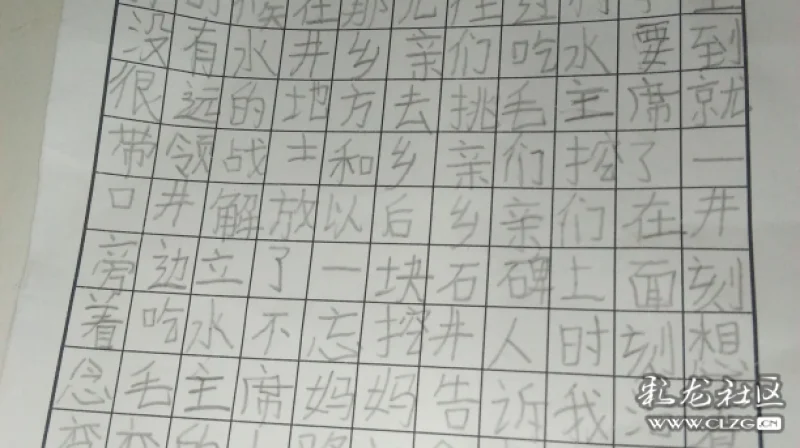 候在那
没有水井乡亲们吃水要到
很远的地方去挑毛主席就
带领战士和乡亲们挖了一
口井解放以后乡亲们在井
旁边立了一块石碑上面刻
着吃水不忘挖井人时刻想
念毛主席妈妈告诉我
弯弯的
彩龙社区
WWW.CLZG.CN